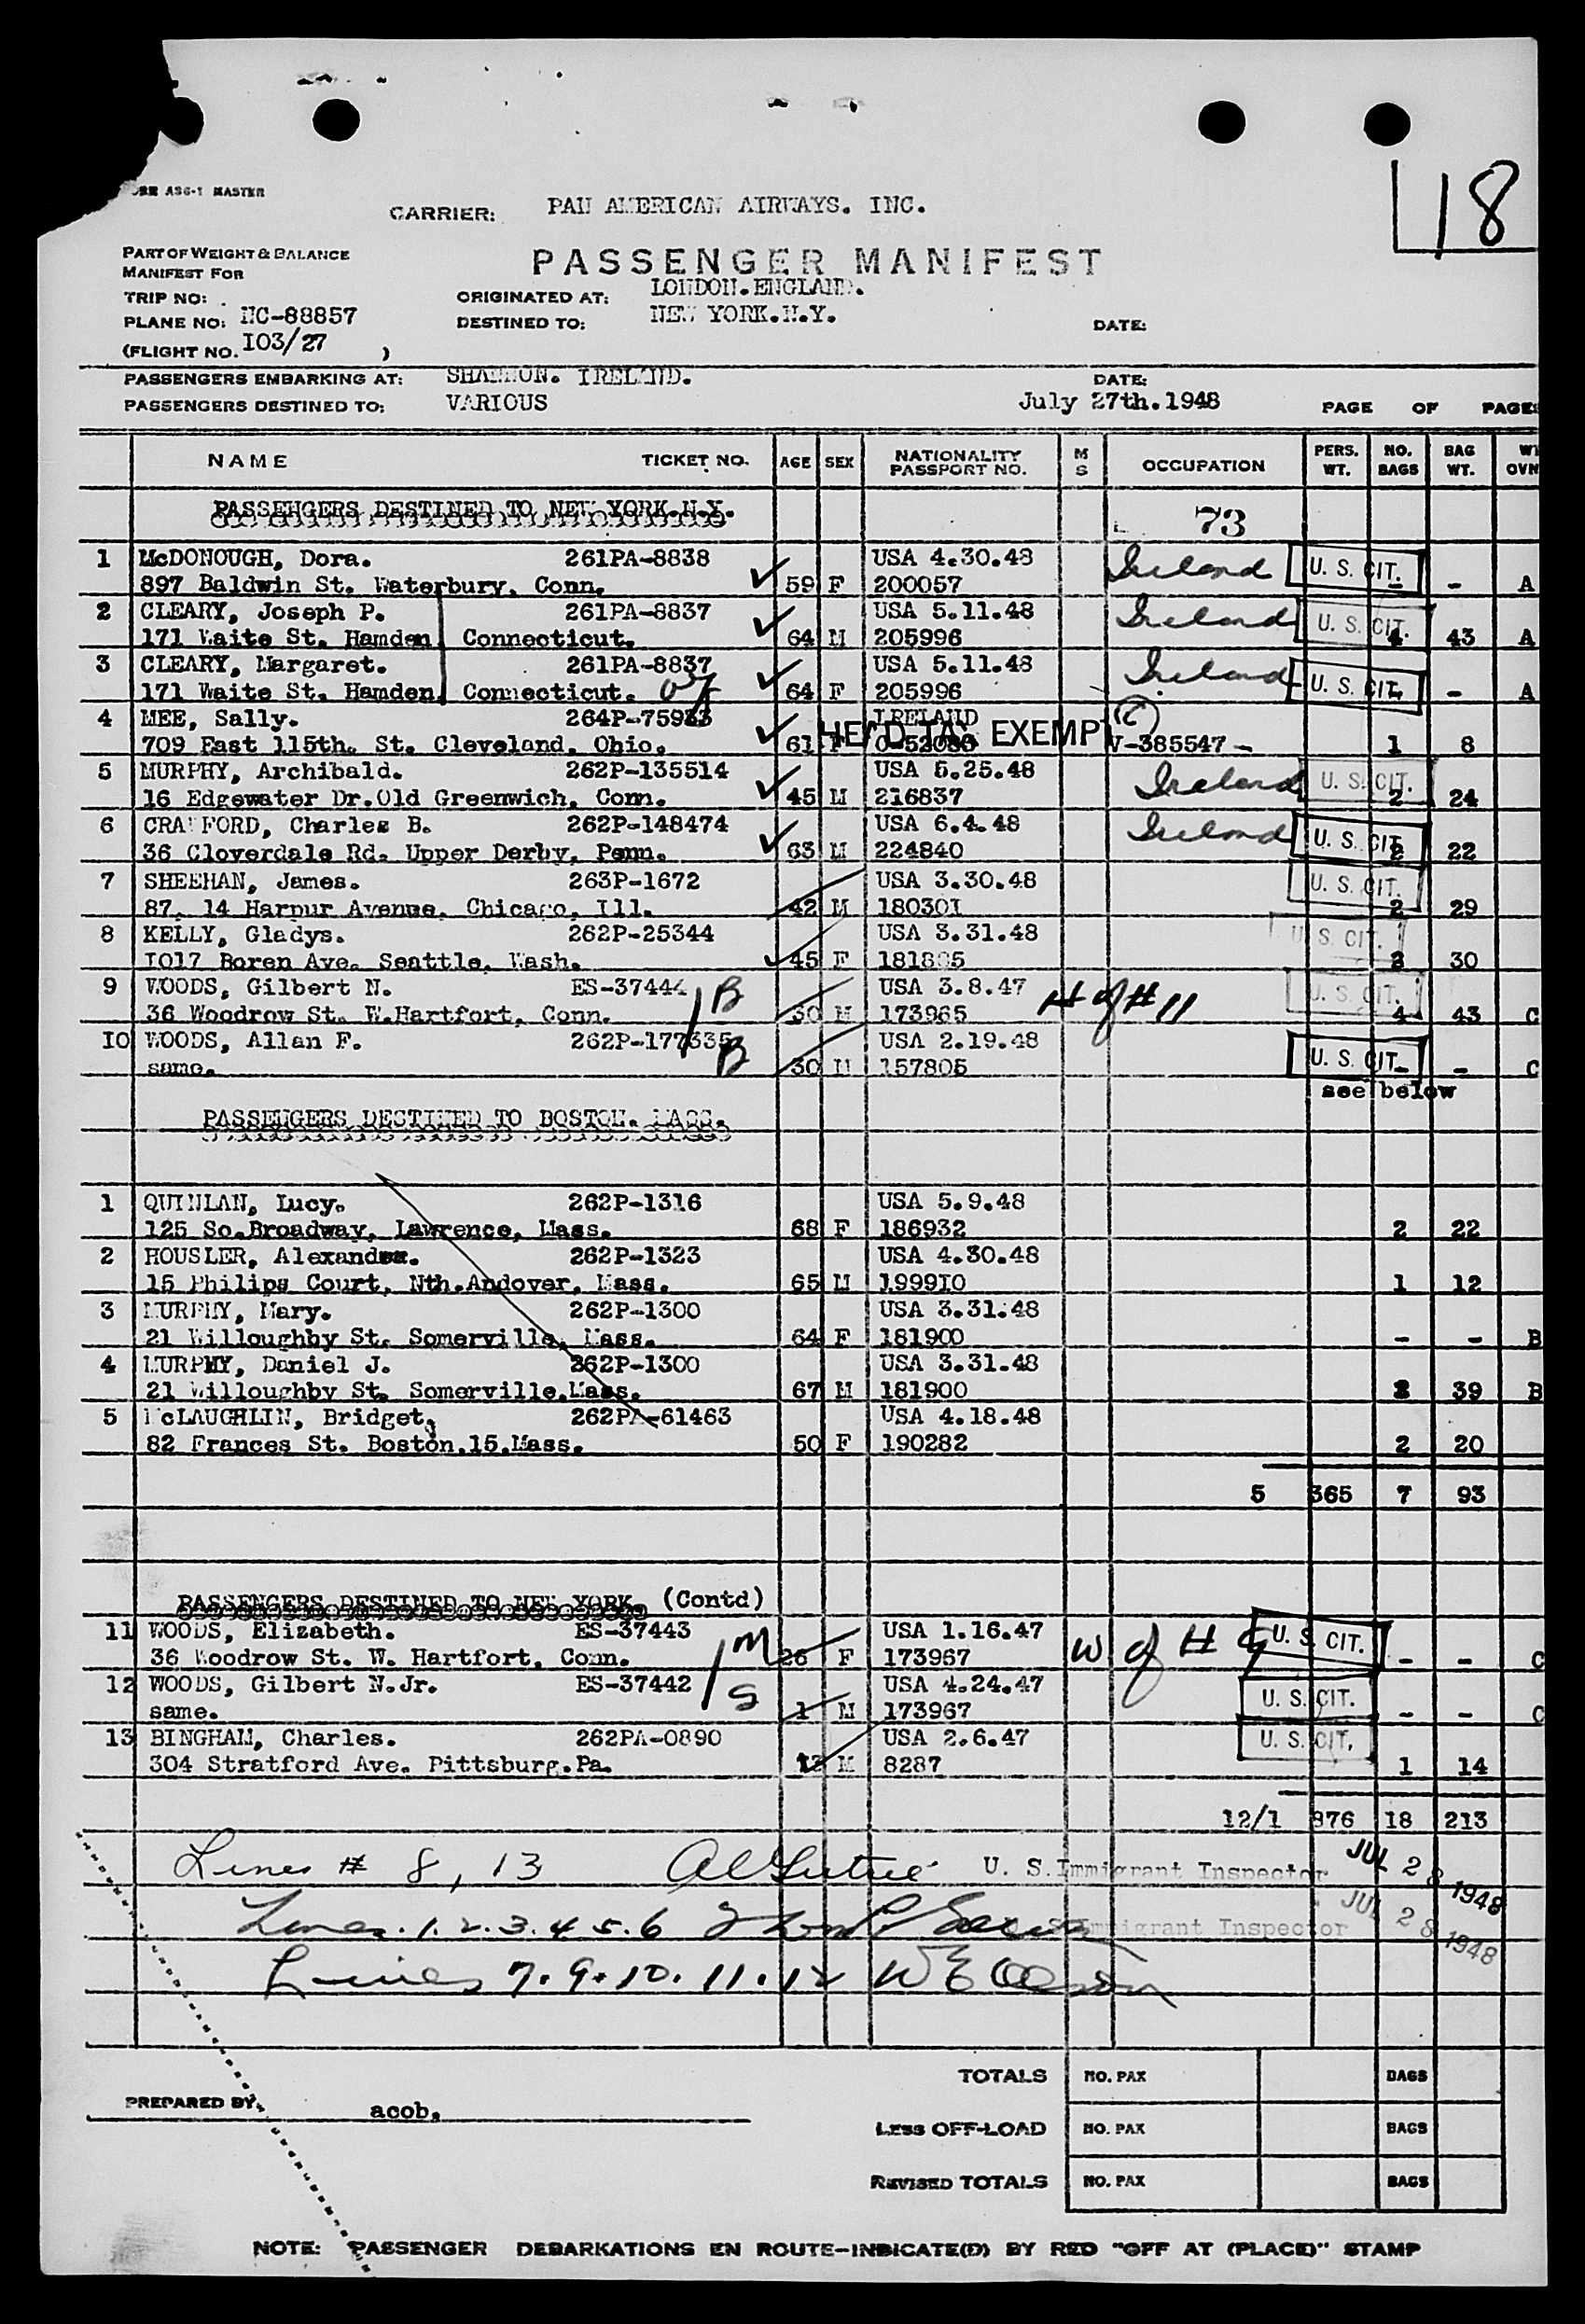 ASG-1 MASTER
18
CARRIER: PAN AMERICAN AIRWAYS. INC.
PART OF WEIGHT & BALANCE
MANIFEST FOR
PASSENGER MANIFEST
TRIP NO: ORIGINATED AT: LONDON.ENGLAND.
PLANE NO: NC-88857 DESTINED TO: NEW YORK.N.Y. DATE:
(FLIGHT NO. I03/27 )
PASSENGERS EMBARKING AT: SHANNON. IRELAND. DATE:
PASSENGERS DESTINED TO: VARIOUS July 27th.1948 PAGE OF PAGES
NAME TICKET NO. AGE SEX NATIONALITY PASSPORT NO. M S OCCUPATION PERS. WT. NO. BAGS BAG WT. WT OVN
PASSENGERS DESTINED TO NEW YORK.N.Y. 73
1 McDONOUGH, Dora. 261PA-8838 USA 4.30.48 Ireland U. S. CIT.
897 Baldwin St. Waterbury, Conn. 59 F 200057 - - A
2 CLEARY, Joseph P. 261PA-8837 USA 5.11.48 Ireland U. S. CIT.
171 Waite St. Hamden Connecticut. 64 M 205996 4 43 A
3 CLEARY, Margaret. 261PA-8837 USA 5.11.48 Ireland U. S. CIT.
171 Waite St. Hamden Connecticut. 64 F 205996 - - A
4 MEE, Sally. 264P-75933 IRELAND HEAD TAX EXEMPT
709 East 115th. St. Cleveland, Ohio. 61 F V-385547 - 1 8
5 MURPHY, Archibald. 262P-135514 USA 5.25.48 Ireland U. S. CIT.
16 Edgewater Dr.Old Greenwich, Conn. 45 M 216837 2 24
6 CRAWFORD, Charles B. 262P-148474 USA 6.4.48 Ireland U. S. CIT.
36 Cloverdale Rd. Upper Derby, Penn. 63 M 224840 2 22
7 SHEEHAN, James. 263P-1672 USA 3.30.48 U. S. CIT.
87, 14 Harpur Avenue, Chicago, Ill. 42 M 18030I 2 29
8 KELLY, Gladys. 262P-25344 USA 3.31.48 U. S. CIT.
I017 Boren Ave. Seattle, Wash. 45 F 30
9 WOODS, Gilbert N. ES-37444 B USA 3.8.47 H of # 11 U. S. CIT.
36 Woodrow St. W.Hartfort, Conn. 30 M 173965 4 43 C
I0 WOODS, Allan F. 262P-177335 B USA 2.19.48 U. S. CIT.
same. 30 M 157805 - - C
see below
PASSENGERS DESTINED TO BOSTON. MASS.
1 QUINLAN, Lucy. 262P-1316 USA 5.9.48
125 So.Broadway, Lawrence, Mass. 68 F 186932 2 22
2 HOUSLER, Alexander. 262P-1323 USA 4.30.48
15 Philips Court, Nth.Andover, Mass. 65 M 1999I0 1 12
3 MURPHY, Mary. 262P-1300 USA 3.31.48
21 Willoughby St. Somerville, Mass. 64 F 181900 - - B
4 MURPHY, Daniel J. 262P-1300 USA 3.31.48
21 Willoughby St. Somerville.Mass. 67 M 181900 2 39 B
5 McLAUGHLIN, Bridget. 262PA-61463 USA 4.18.48
82 Frances St. Boston.15.Mass. 50 F 190282 2 20
5 365 7 93
PASSENGERS DESTINED TO NEW YORK. (Contd)
11 WOODS, Elizabeth. ES-37443 M USA 1.16.47 W of # 9 U. S. CIT.
36 Woodrow St. W. Hartfort, Conn. 26 F 173967 - - C
12 WOODS, Gilbert N.Jr. ES-37442 S USA 4.24.47 U. S. CIT.
same. 1 M 173967 - - C
13 BINGHAM, Charles. 262PA-0890 USA 2.6.47 U. S. CIT.
304 Stratford Ave. Pittsburg.Pa. M 8287 1 14
12/1 976 18 213
Lines # 8, 13 U. S. Immigrant Inspector JUL 28 1948
Lines. 1. 2. 3. 4 5. 6 U. S. Immigrant Inspector JUL 28 1948
Lines 7. 9. 10. 11. 12
TOTALS NO. PAX BAGS
PREPARED BY. acob.
LESS OFF-LOAD NO. PAX BAGS
REVISED TOTALS NO. PAX BAGS
NOTE: PASSENGER DEBARKATIONS EN ROUTE-INDICATE(D) BY RED "OFF AT (PLACE)" STAMP